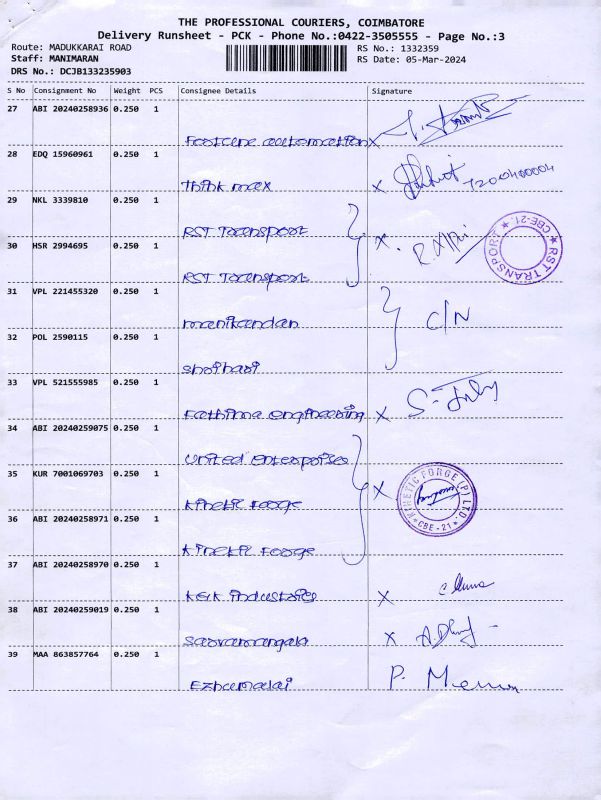 THE PROFESSIONAL COURIERS, COIMBATORE
Delivery Runsheet - PCK - Phone No.:0422-3505555 - Page No.:3
Route: MADUKKARAI ROAD RS No.: 1332359
Staff: MANIMARAN RS Date: 05-Mar-2024
DRS No.: DCJB133235903
S No Consignment No Weight PCS Consignee Details Signature
27 ABI 20240258936 0.250 1
automation X
28 EDQ 15960961 0.250 1
think max X 7200400004
29 NKL 3339810 0.250 1
RST Transport X.
30 HSR 2994695 0.250 1
RST Transport
RST TRANSPORT CBE-21
31 VPL 221455320 0.250 1
manikandan C/N
32 POL 2590115 0.250 1
33 VPL 521555985 0.250 1
Fathima engineering X
34 ABI 20240259075 0.250 1
United Enterprises
35 KUR 7001069703 0.250 1
Kinetic Forge X
KINETIC FORGE (P) LTD. CBE-21
36 ABI 20240258971 0.250 1
Kinetic Forge
37 ABI 20240258970 0.250 1
K&K industries X
38 ABI 20240259019 0.250 1
Sarvamangala X
39 MAA 863857764 0.250 1
Ezhumalai